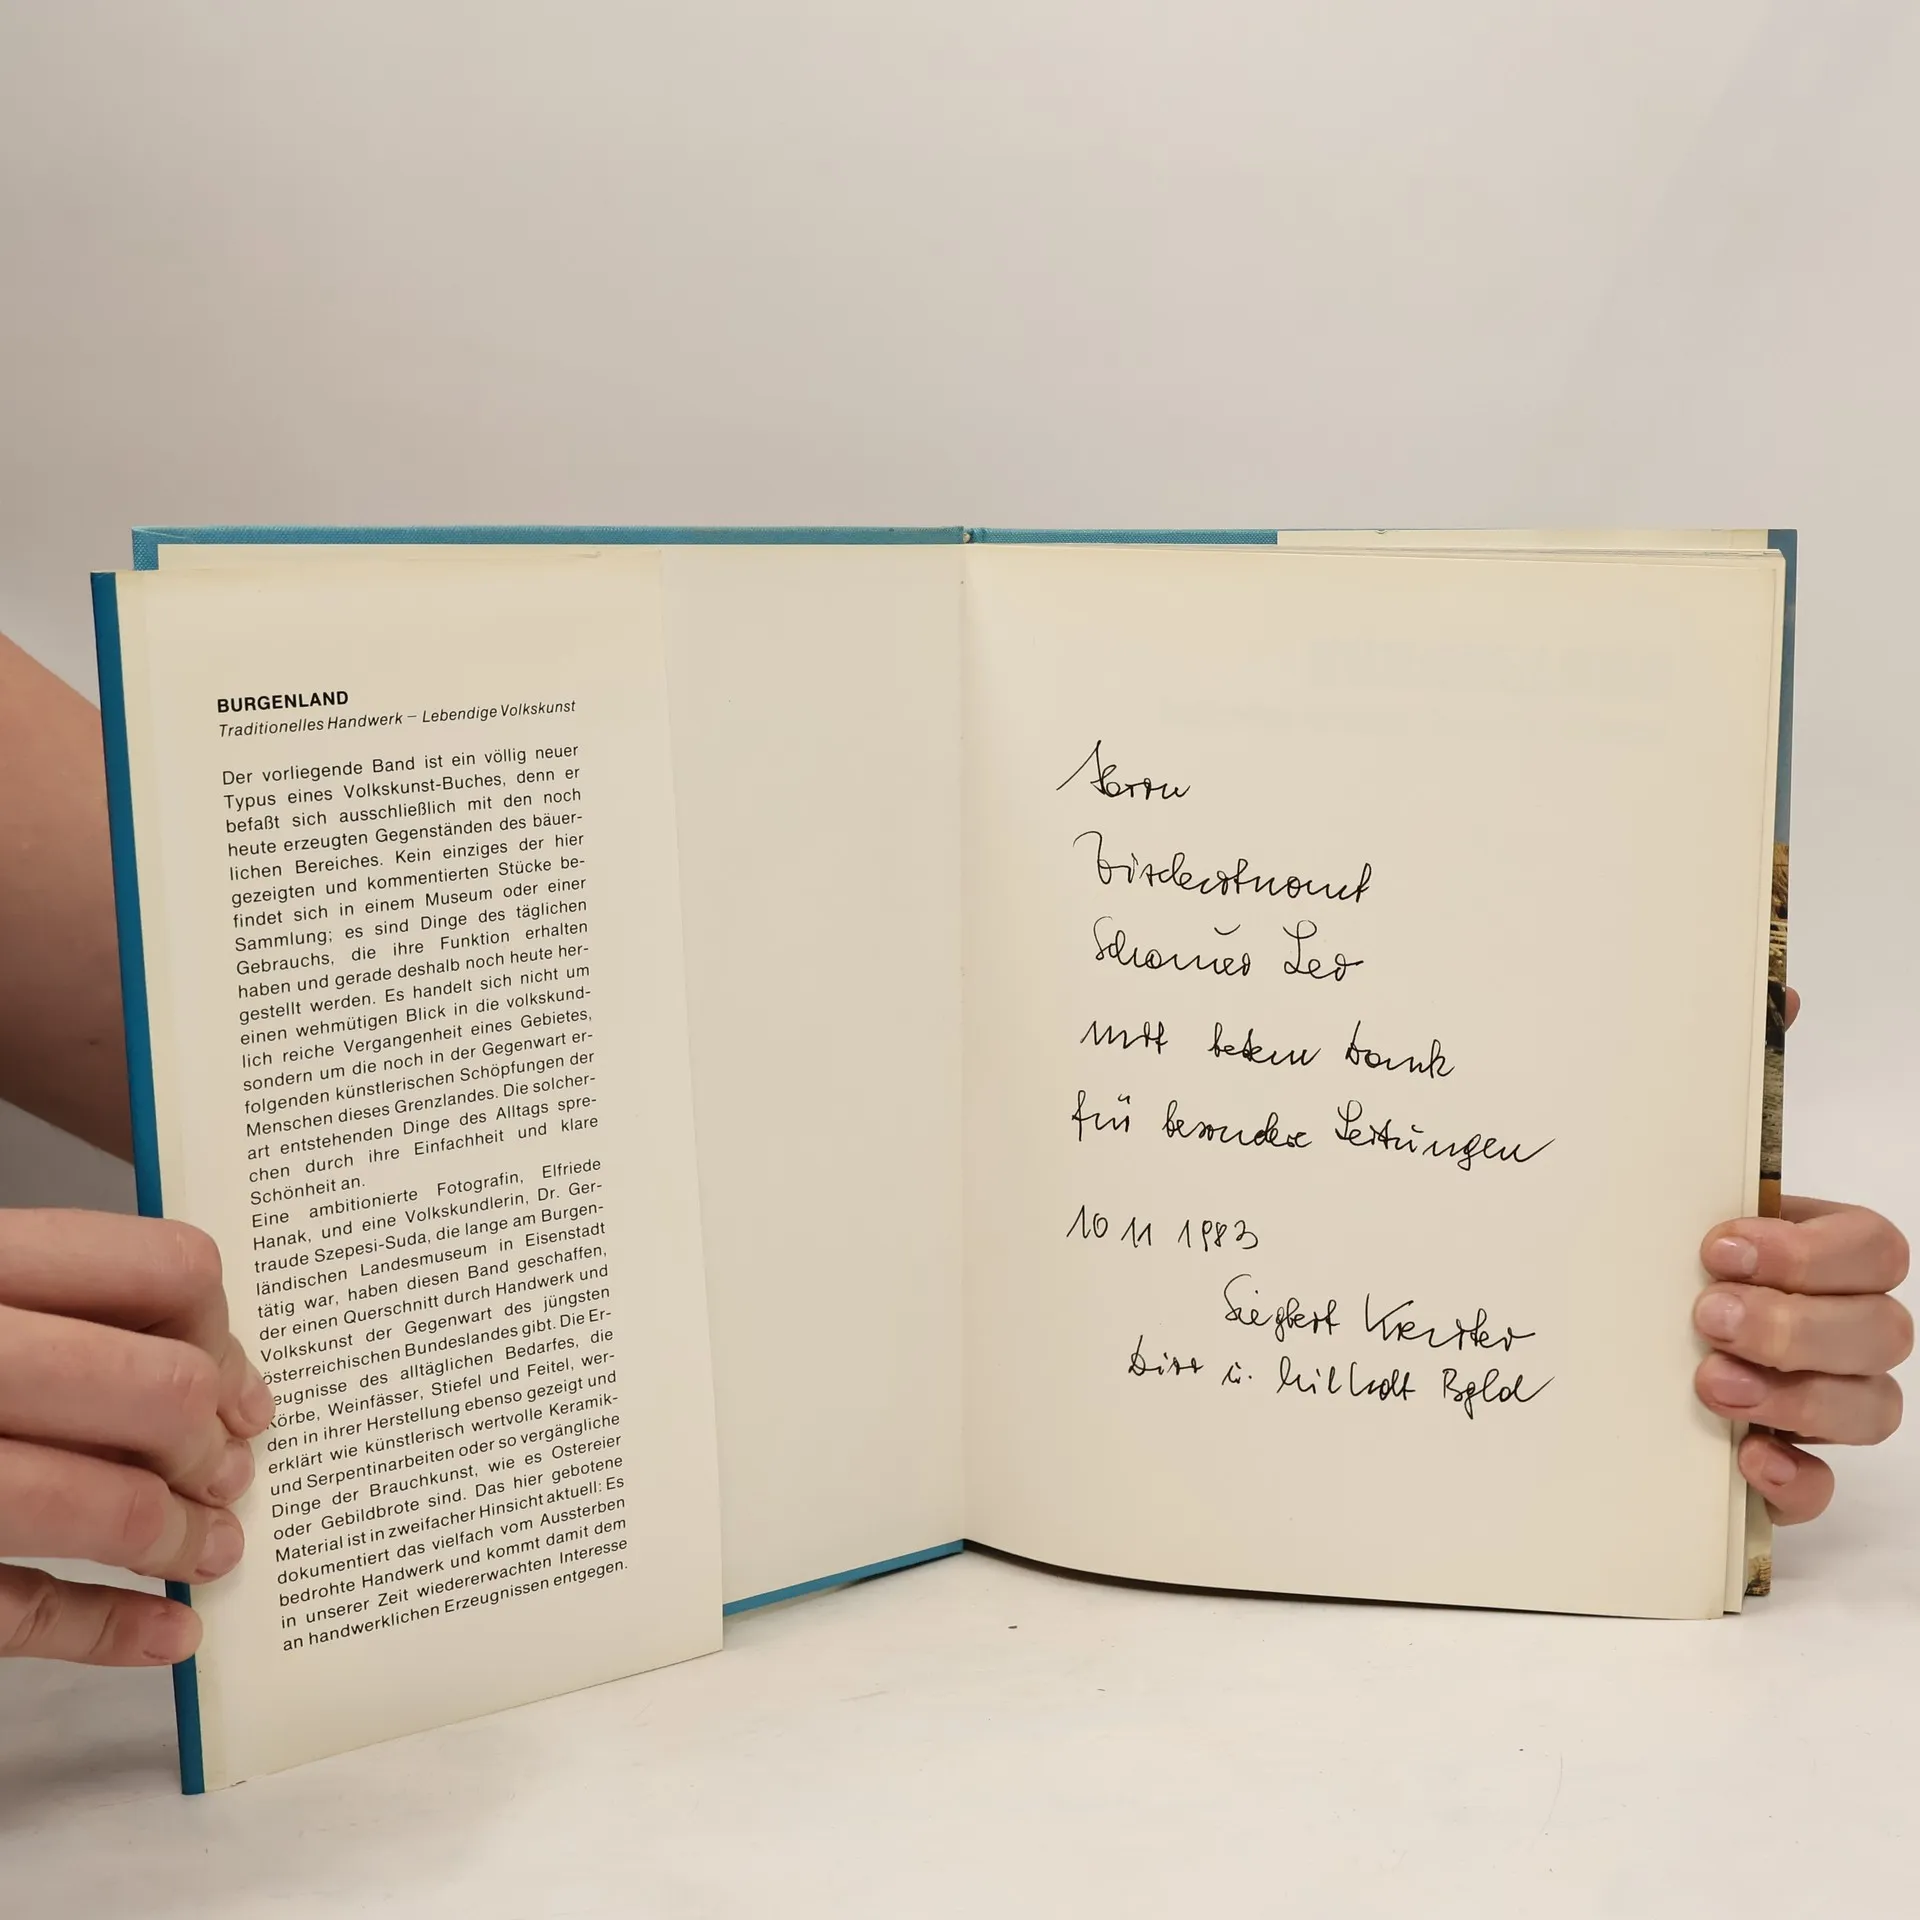 BURGENLAND
Traditionelles Handwerk – Lebendige Volkskunst
Der vorliegende Band ist ein völlig neuer
Typus eines Volkskunst-Buches, denn er
befaßt sich ausschließlich mit den noch
heute erzeugten Gegenständen des bäuer-
lichen Bereiches. Kein einziges der hier
gezeigten und kommentierten Stücke be-
findet sich in einem Museum oder einer
Sammlung; es sind Dinge des täglichen
Gebrauchs, die ihre Funktion erhalten
haben und gerade deshalb noch heute her-
gestellt werden. Es handelt sich nicht um
einen wehmütigen Blick in die volkskund-
lich reiche Vergangenheit eines Gebietes,
sondern um die noch in der Gegenwart er-
folgenden künstlerischen Schöpfungen der
Menschen dieses Grenzlandes. Die solcher-
art entstehenden Dinge des Alltags spre-
chen durch ihre Einfachheit und klare
Schönheit an.
Eine ambitionierte Fotografin, Elfriede
Hanak, und eine Volkskundlerin, Dr. Ger-
traude Szepesi-Suda, die lange am Burgen-
ländischen Landesmuseum in Eisenstadt
tätig war, haben diesen Band geschaffen,
der einen Querschnitt durch Handwerk und
Volkskunst der Gegenwart des jüngsten
österreichischen Bundeslandes gibt. Die Er-
zeugnisse des alltäglichen Bedarfes, die
Körbe, Weinfässer, Stiefel und Feitel, wer-
den in ihrer Herstellung ebenso gezeigt und
erklärt wie künstlerisch wertvolle Keramik-
und Serpentinarbeiten oder so vergängliche
Dinge der Brauchkunst, wie es Ostereier
oder Gebildbrote sind. Das hier gebotene
Material ist in zweifacher Hinsicht aktuell: Es
dokumentiert das vielfach vom Aussterben
bedrohte Handwerk und kommt damit dem
in unserer Zeit wiedererwachten Interesse
an handwerklichen Erzeugnissen entgegen.
Herrn
Leo
mit bestem Dank
für besondere Leistungen
10 11 1983
Siegbert
Bgld